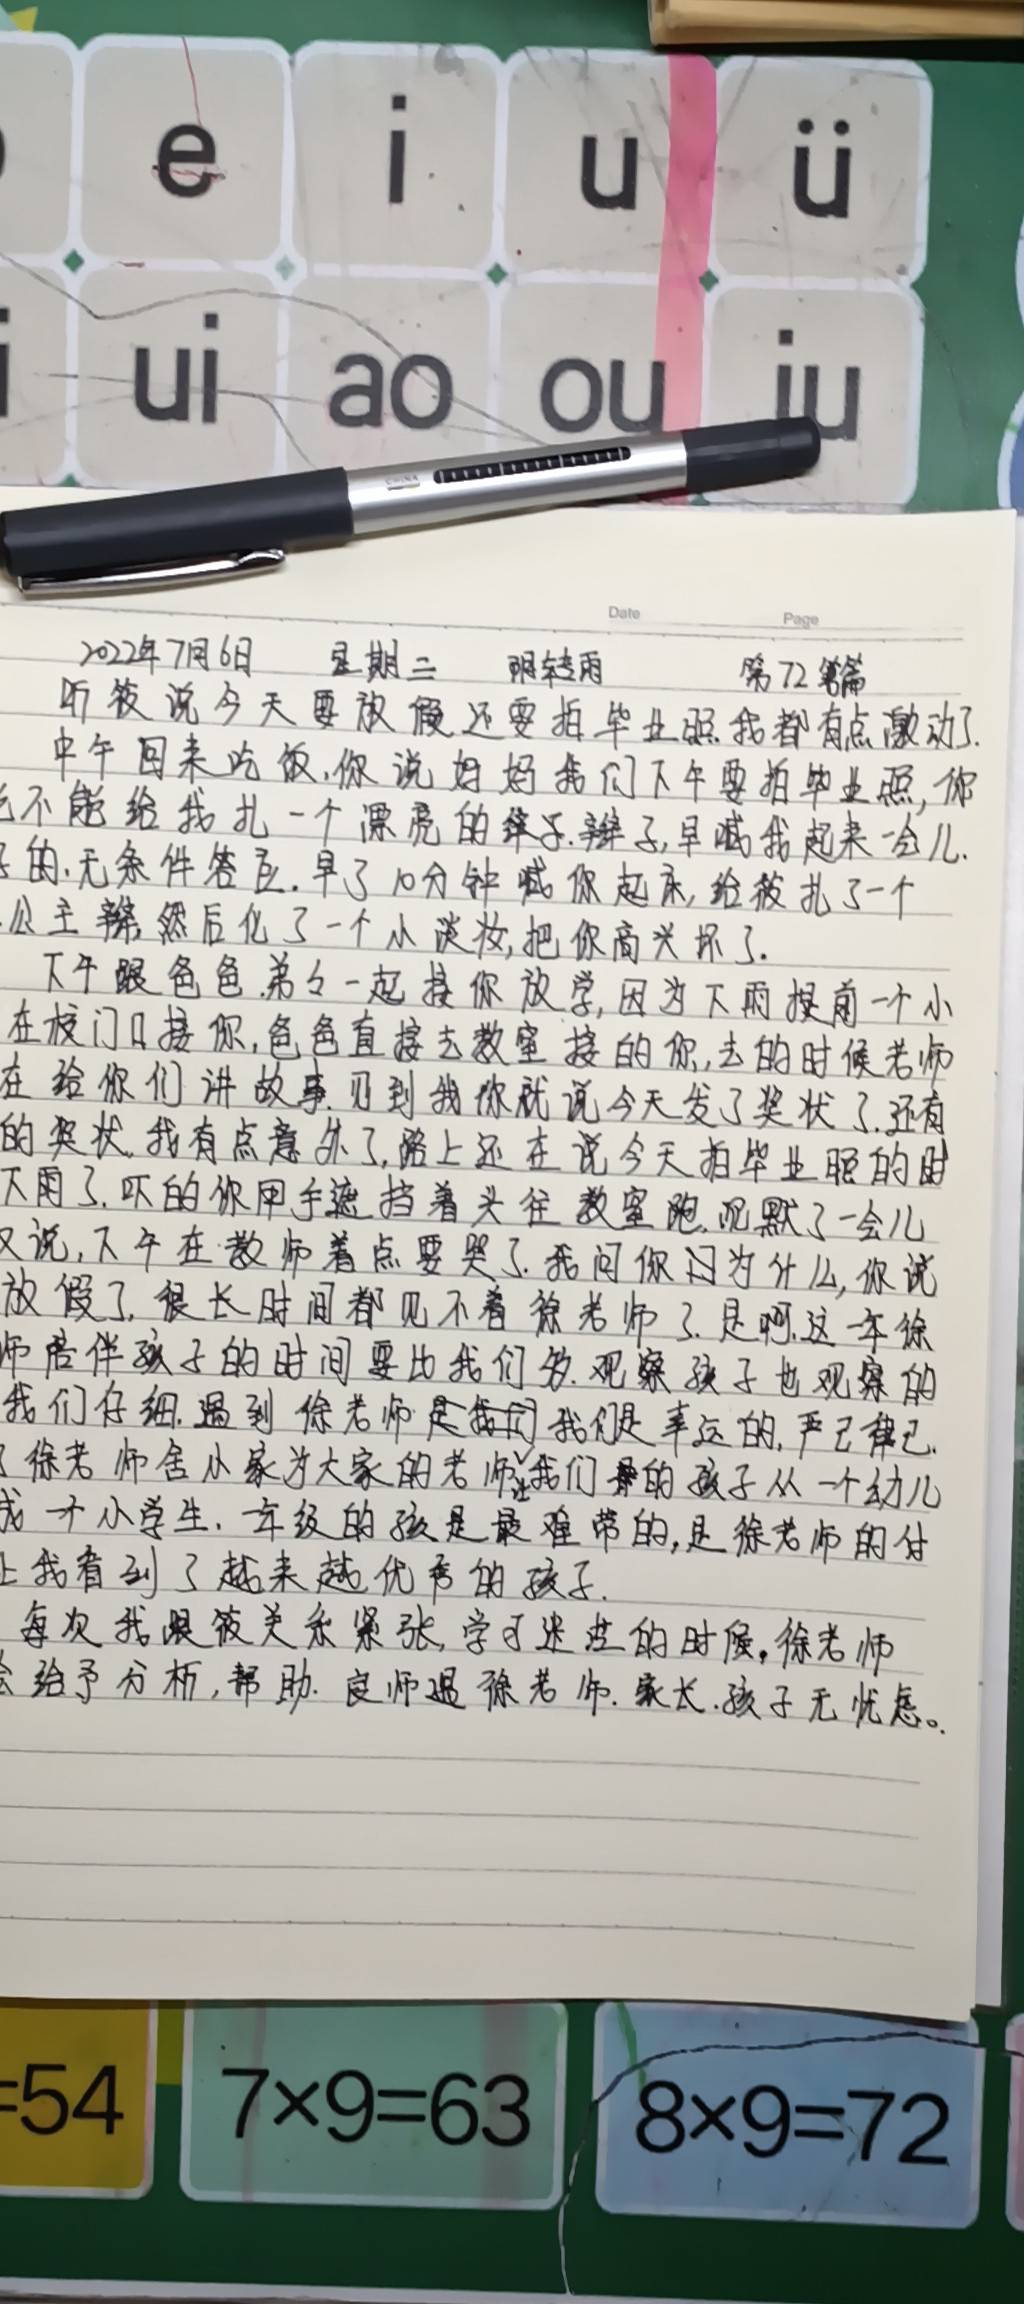 e i u ü
ui ao ou iu
CHINA
Date Page
2022年7月6日 星期三 阴转雨 第72篇
听筱说今天要放假还要拍毕业照我都有点激动了.
中午回来吃饭,你说妈妈我们下午要拍毕业照,你
不能给我扎一个漂亮的辫子,早喊我起来一会儿.
的.无条件答应.早了10分钟喊你起床,给筱扎了一个
公主辫,然后化了一个小淡妆,把你高兴坏了.
下午跟色色弟々一起接你放学,因为下雨提前一个小
在校门口接你,色色直接去教室接的你,去的时候老师
在给你们讲故事.见到我你就说今天发了奖状了.还有
的奖状.我有点意外了,路上还在说今天拍毕业照的时
下雨了.吓的你用手遮挡着头往教室跑.沉默了一会儿
又说,下午在教师着点要哭了.我问你为什么,你说
放假了,很长时间都见不着徐老师了.是啊.这一年徐
师陪伴孩子的时间要比我们多.观察孩子也观察的
我们仔细.遇到徐老师我们是幸运的,严己律己.
了徐老师舍小家为大家的老师让我们的孩子从一个幼儿
成一个小学生.一年级的孩是最难带的,是徐老师的付
让我看到了越来越优秀的孩子.
每次我跟筱关系紧张,学习迷茫的时候,徐老师
会给予分析,帮助.良师遇徐老师.家长.孩子无忧虑。
=54 7×9=63 8×9=72